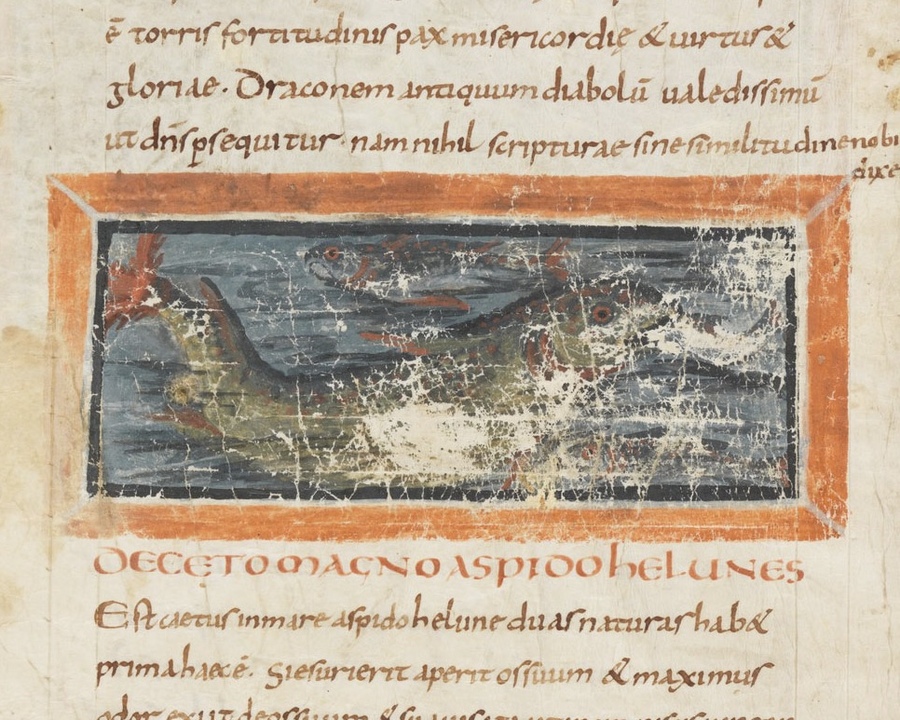 ē torris fortitudinis pax misericordię & uirtus &
gloriae. Draconem antiquum diabolū ualedissimū
ut dn̄s ꝑsequitur nam nihil scripturae sine similitudine nobi
dixe
DE CETO MAGNO ASPIDOHELUNES
Est caetus in mare aspidohelune duas naturas hab&
prima haec ē. Si esurierit aperit os suum & maximus
odor exiit de os suum &